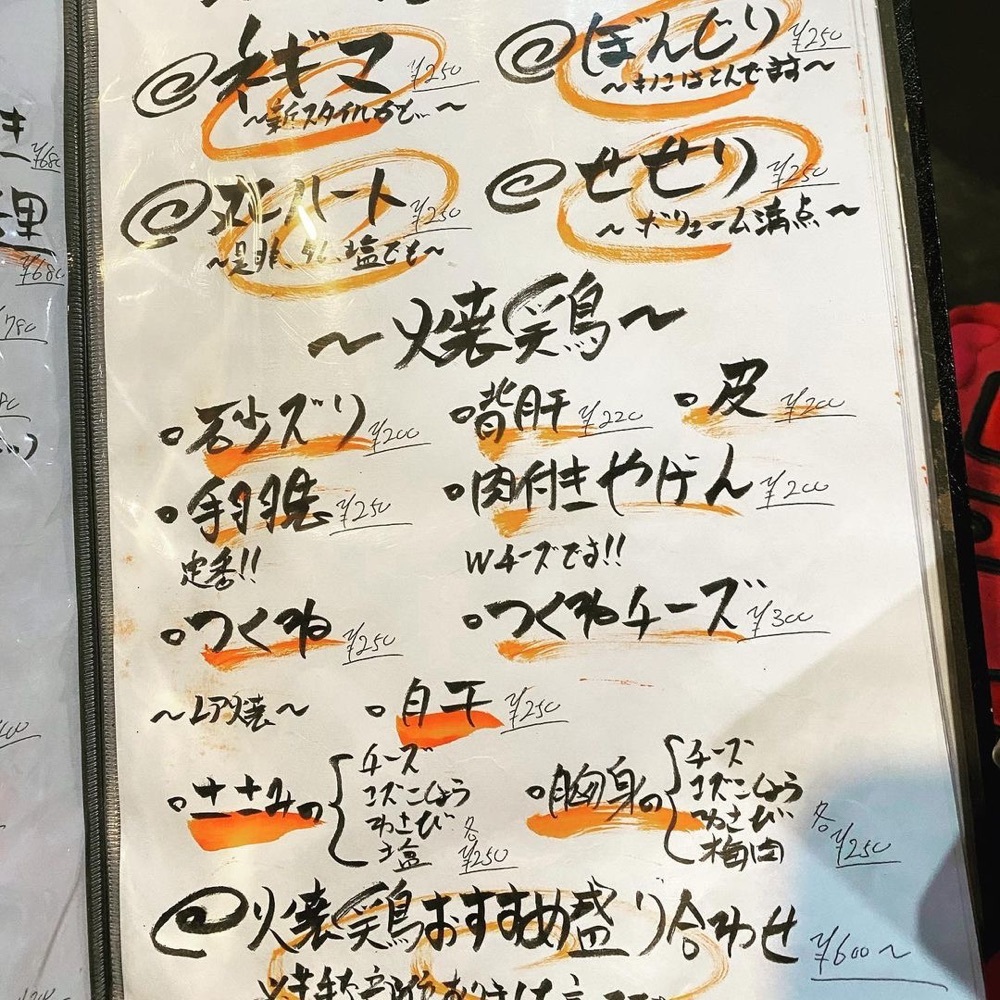 @ネギマ ¥250 @ぼんじり ¥250
〜新スタイルかも…〜 〜きのこはさんでます〜
ハート ¥250 @せせり ¥250
〜是非、タレ、塩でも〜 〜ボリューム満点〜
〜焼笑鶏〜
砂ズリ ¥200 背肝 ¥220 皮 ¥200
手羽 ¥250 肉付きやげん ¥200
定番!! Wチーズです!!
つくね ¥250 つくねチーズ ¥300
〜レア焼〜 白干 ¥250
ささみの 胸身の
チーズ チーズ
ユズこしょう ユズこしょう
わさび わさび
塩 梅肉
各¥250 各¥250
@焼笑鶏おすすめ盛り合わせ ¥600〜
き ¥680
理 ¥680
¥780